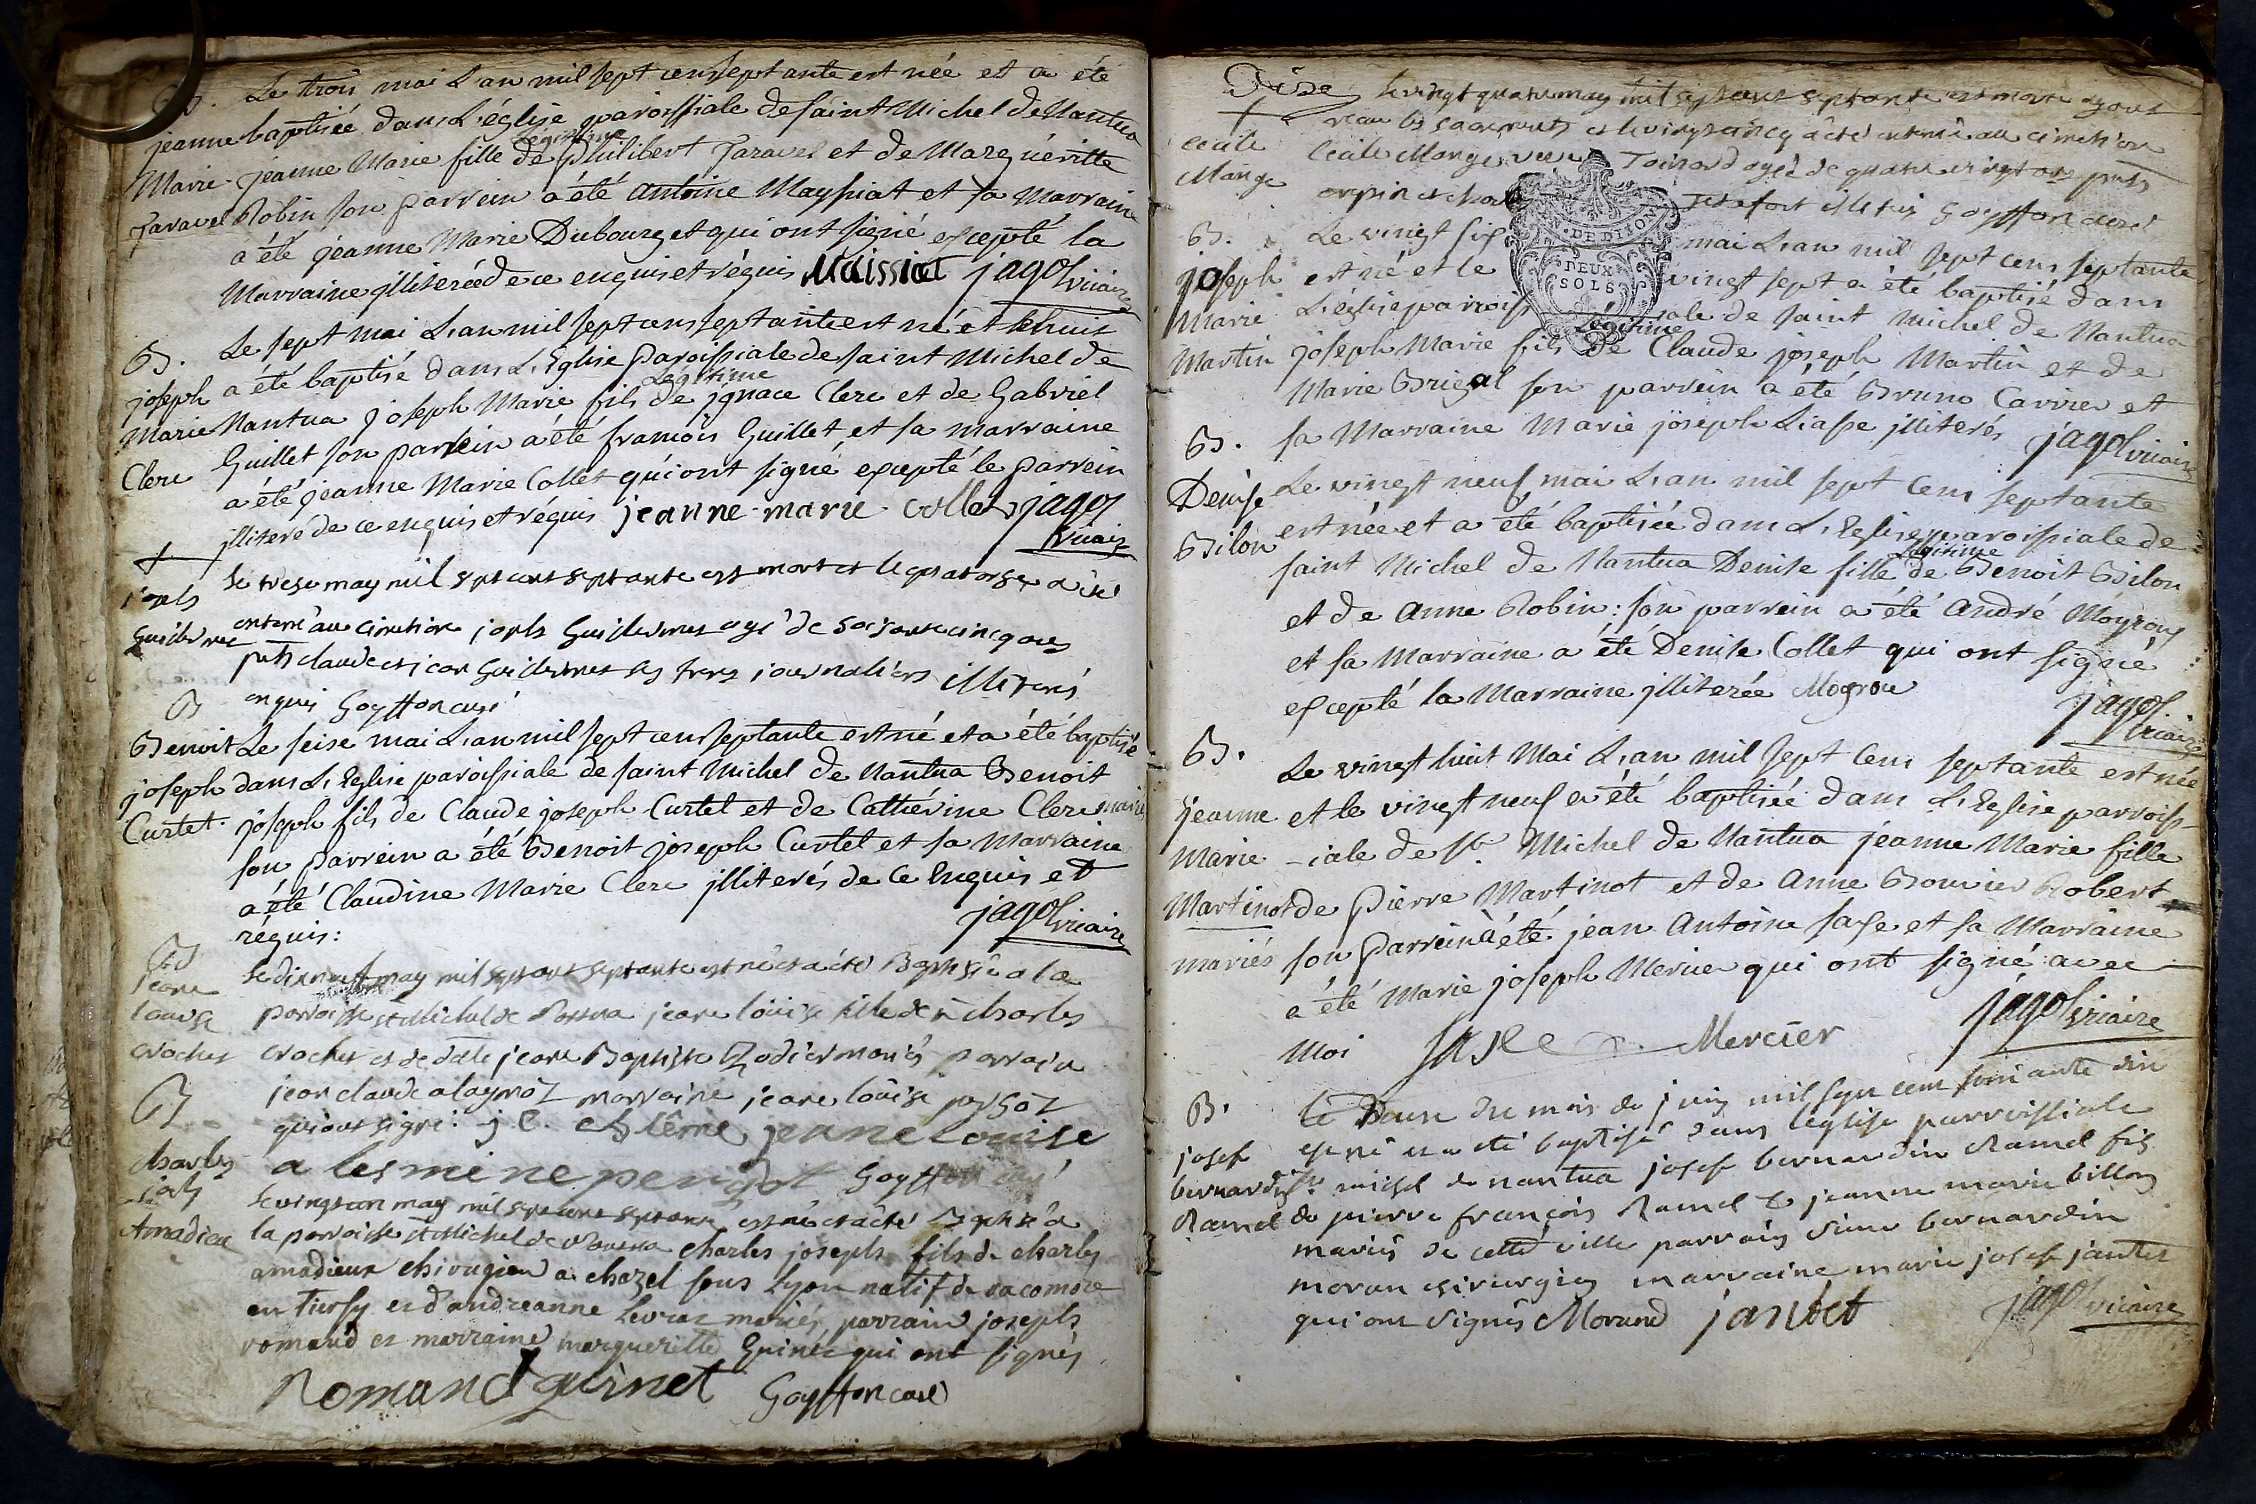 B. Le trois mai L'an mil sept cens septante est née et a été
jeanne baptisée dans L'église paroissiale de saint Michel de Nantua
Légitime
Marie jeanne Marie fille de Philibert Taravel et de Marguéritte
Taravel Robin son parrein a été antoine Mayssiat et sa Marraine
a été jeanne Marie Dubourget qui ont signé excepté la
Marraine jlliterée de ce enquis et réquis Maissiat jagot vicaire
B. Le sept mai L'an mil sept cens septante est né et le huit
joseph a été baptisé dans L'Eglise Paroissiale de saint Michel de
Légitime
Marie Nantua joseph Marie fils de jgnace Clerc et de Gabriel
Clerc Guillet son parrein a été francois Guillet et sa marraine
a été jeanne Marie Collet qui ont signé excepté le parrein
jlliteré de ce enquis et réquis jeanne marie collet jagot
vicaire
Le trese may mil sept cent septante est mort et le quatorse a été
enterré au cimetiere joseph Guillermet agé de soixante cinq ans
Guillermet
pnts claude et jean Guillermet ses freres journaliers illiterés
enquis Goyffon curé
B
Benoit Le seise mai L'an mil sept cens septante est né et a été baptisé
joseph dans L'Eglise paroissiale de saint Michel de Nantua Benoit
Curtet joseph fils de Claude joseph Curtet et de Cathérine Clerc mariés
son Parrein a été Benoit joseph Curtet et sa Marraine
a été Claudine Marie Clerc jlliterés de ce Enquis et
réquis: jagot vicaire
B
jeane Le dixneuf may mil sept cent septante est née et a été Baptisée a la
louise parroisse st Michel de Nantua jeane loüise fille de charles
crochet crochet et de jeane Baptiste Rodier mariés parrain
B jean claude alaymoz marraine jeane loüise
qui ont signé: j C. jeane louise
Goyffon curé
charles Le vingt un may mil sept cent septante est né et a été Baptisé a
joseph
Amadieu la parroisse st Michel de Nantua charles joseph fils de charles
amadieux chirugien a chazel sous Lyon natif de
en et d'andreanne Levrat mariés, parrain joseph
romand et marraine margueritte Guinet qui ont signés
Romand guinet Goyffon curé
Le vingt quatre may mil sept cent septante est morte ayant
recu les sacrements et le vingt cinq a été enterrée au cimetiere
cecile Cecile Mange veuve Toinard agée de quatre vingt ans pnts
Mange
illiteres Goyffon curé
DE DIJON
DEUX
SOLS
B. Le vingt six mai L'an mil sept cens septante
joseph est né et le vingt sept a été baptisé dans
Marie L'église paroissiale de saint Michel de Nantua
Légitime
Martin joseph Marie fils de Claude joseph Martin et de
Marie Brigal son parrein a été Bruno Carrier et
B. sa Marraine Marie joseph Liasse jlliterés jagot vicaire
Denise Le vingt neuf mai L'an mil sept Cens septante
Bilon est née et a été baptisée dans L'Eglise paroissiale de
Légitime
saint Michel de Nantua Denise fille de Benoit Bilon
et de anne Robin: son parrein a été andré Mogroux
et sa Marraine a été Denise Collet qui ont signé
excepté la Marraine jlliterée Mogrou jagot
vicaire
B. Le vingt huit Mai L'an mil sept Cens septante est née
jeanne et le vingt neuf a été baptisée dans L'Eglise parroiss-
Marie -iale de st Michel de Nantua jeanne Marie fille
Martinot de Pierre Martinot et de anne Bouvier Robert
mariés son Parrein a été jean antoine sase et sa Marraine
a été Marie joseph Mercier qui ont signé avec
Moi sase Mercier jagot vicaire
B. le Douse du mois de juin mil sept cent soixante dix
josef est né et a eté baptisé dans l'eglise parroissiale
bernardin st michel de nantua josef bernardin Ramel fils
Ramel de pierre françois Ramel & jeanne marie billon
mariés de cette ville parrain sieur bernardin
moran chirurgien marraine marie josef jantet
qui ont signés Morand jantet jagot vicaire